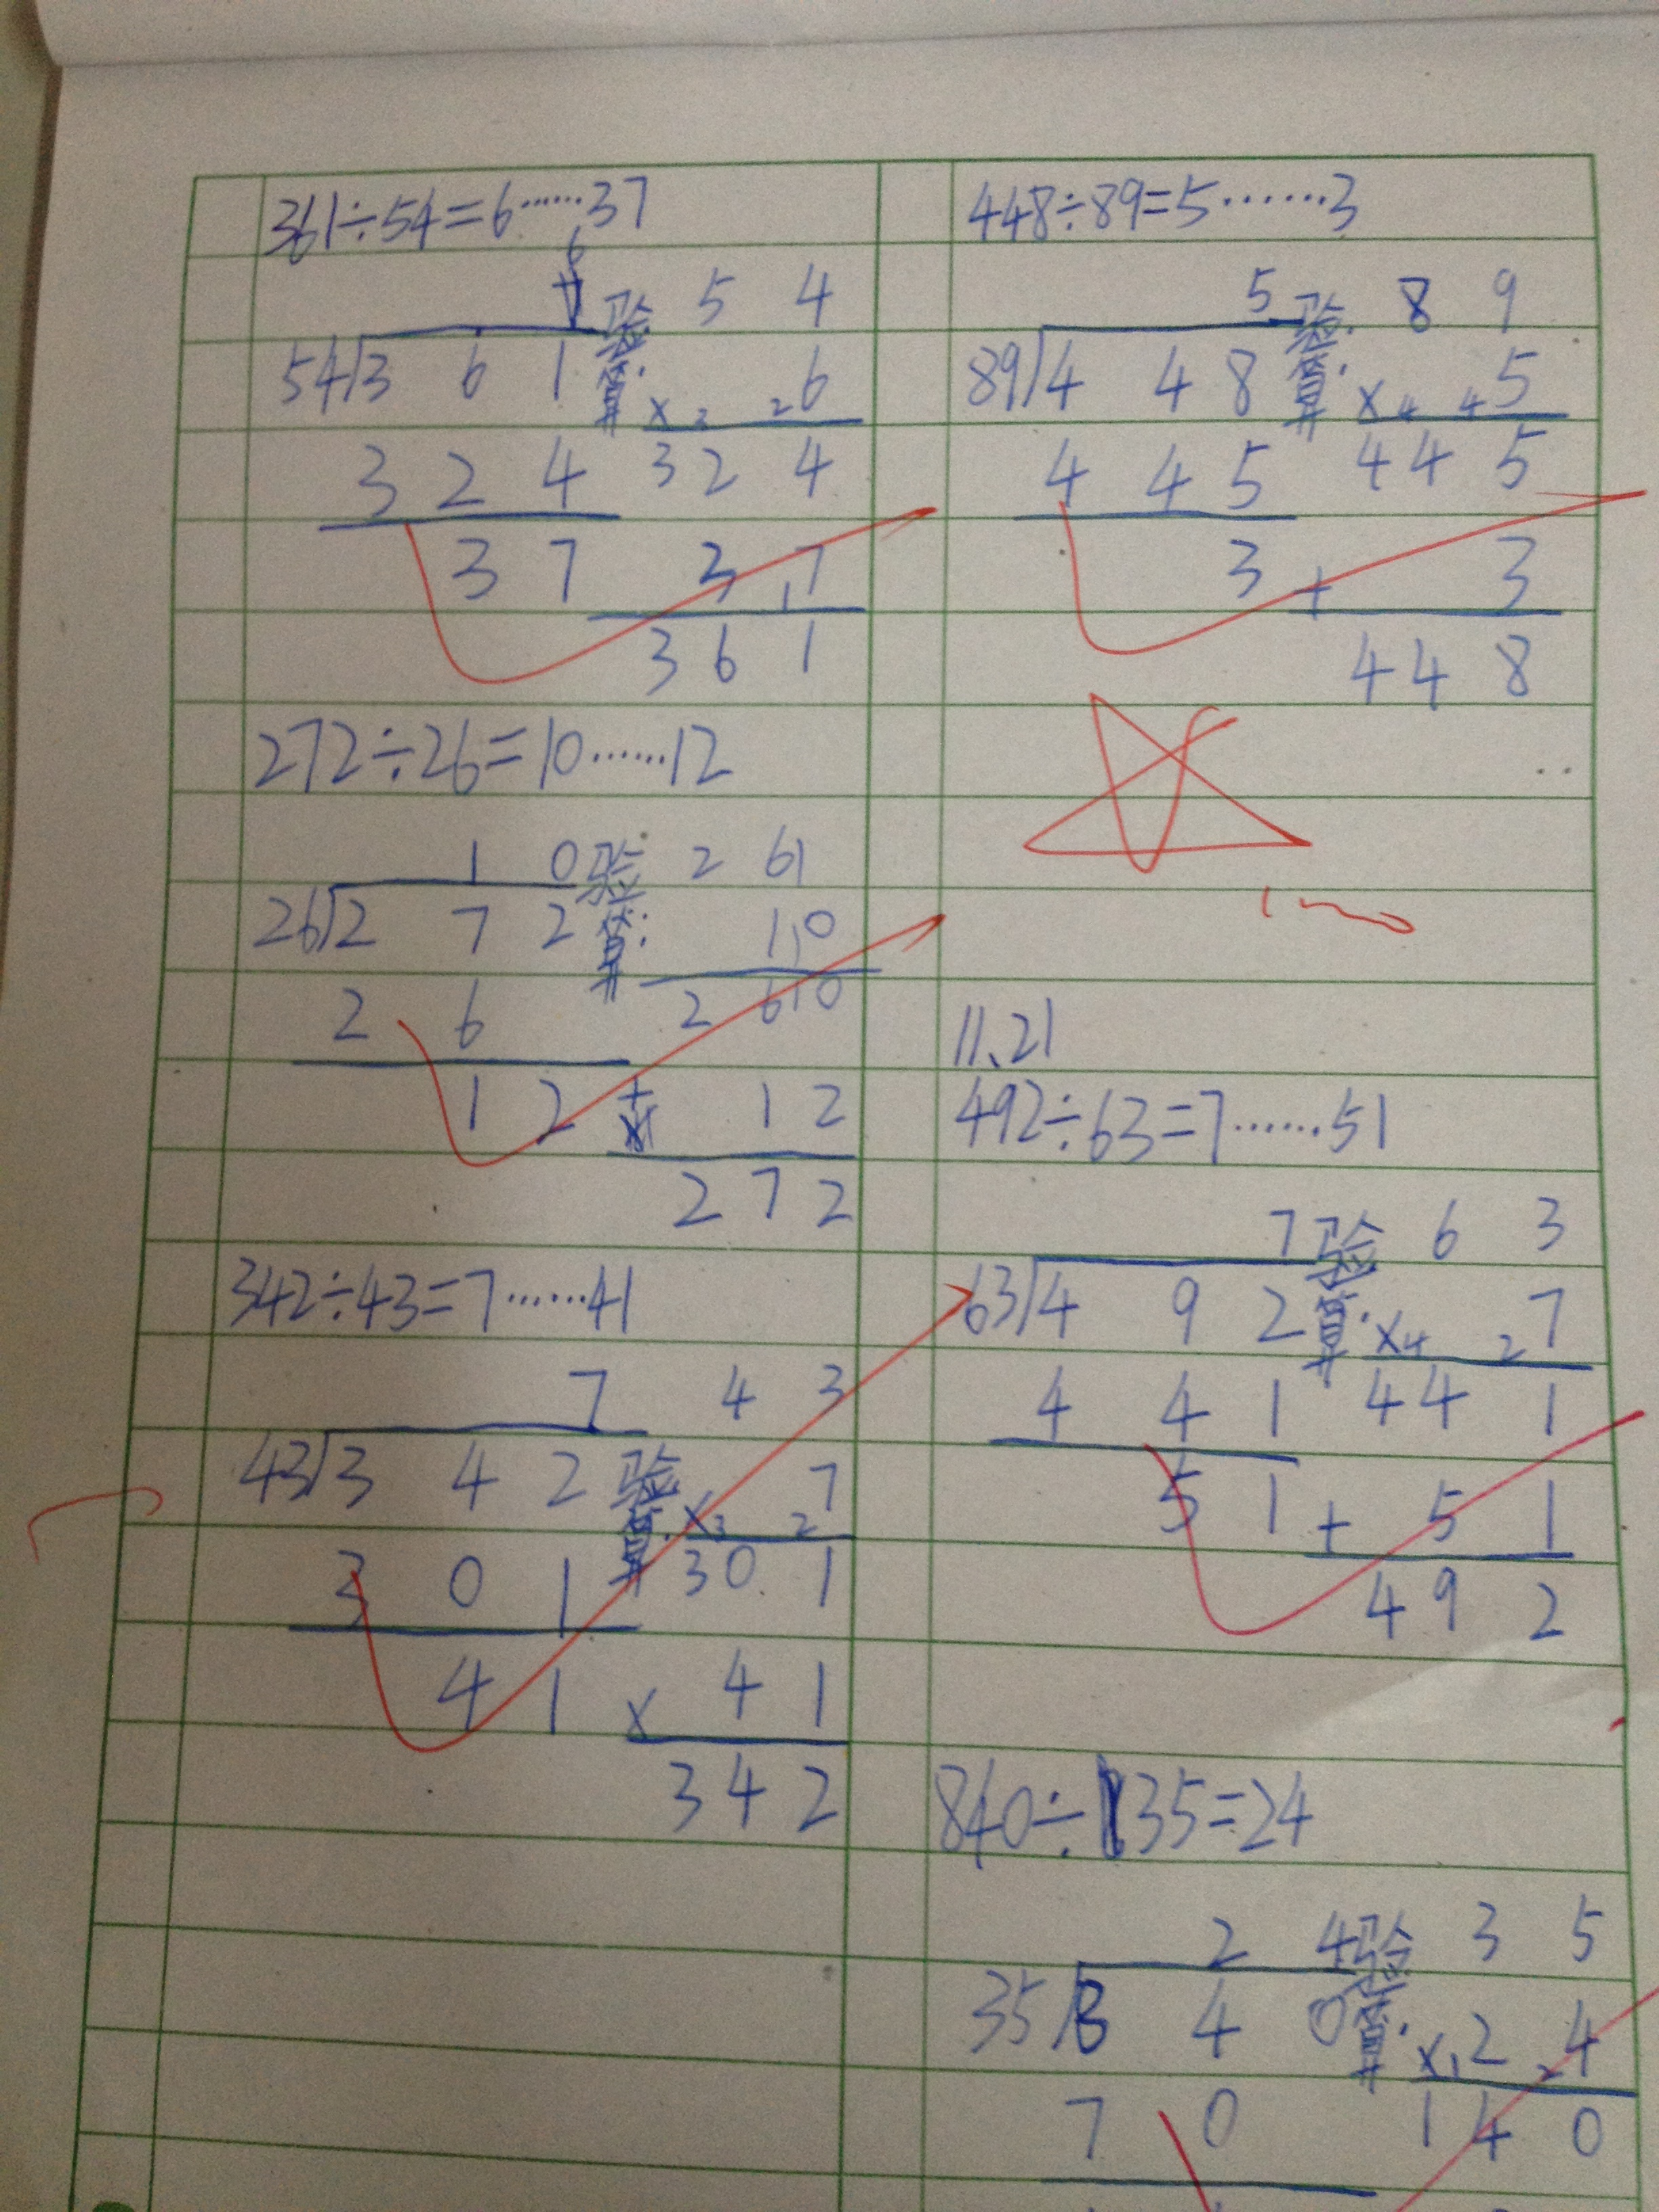 361÷54=6……37
6 验 5 4
54 3 6 1 算: 6
× 3 2
3 2 4 3 2 4
3 7 3 1 7
3 6 1
272÷26=10……12
1 0 验 2 6
26 2 7 2 算: 1 0
2 6 2 6 0
1 2 + 1 2
2 7 2
342÷43=7……41
7 4 3
43 3 4 2 验 7
算: × 3 2
3 0 1 3 0 1
4 1 × 4 1
3 4 2
448÷89=5……3
5 验 8 9
89 4 4 8 算: × 4 4 5
4 4 5 4 4 5
3 + 3
4 4 8
100
11、21
492÷63=7……51
7 验 6 3
63 4 9 2 算: × 4 2 7
4 4 1 4 4 1
5 1 + 5 1
4 9 2
840÷35=24
2 4 验 3 5
35 8 4 0 算: × 1 2 2 4
7 0 1 4 0